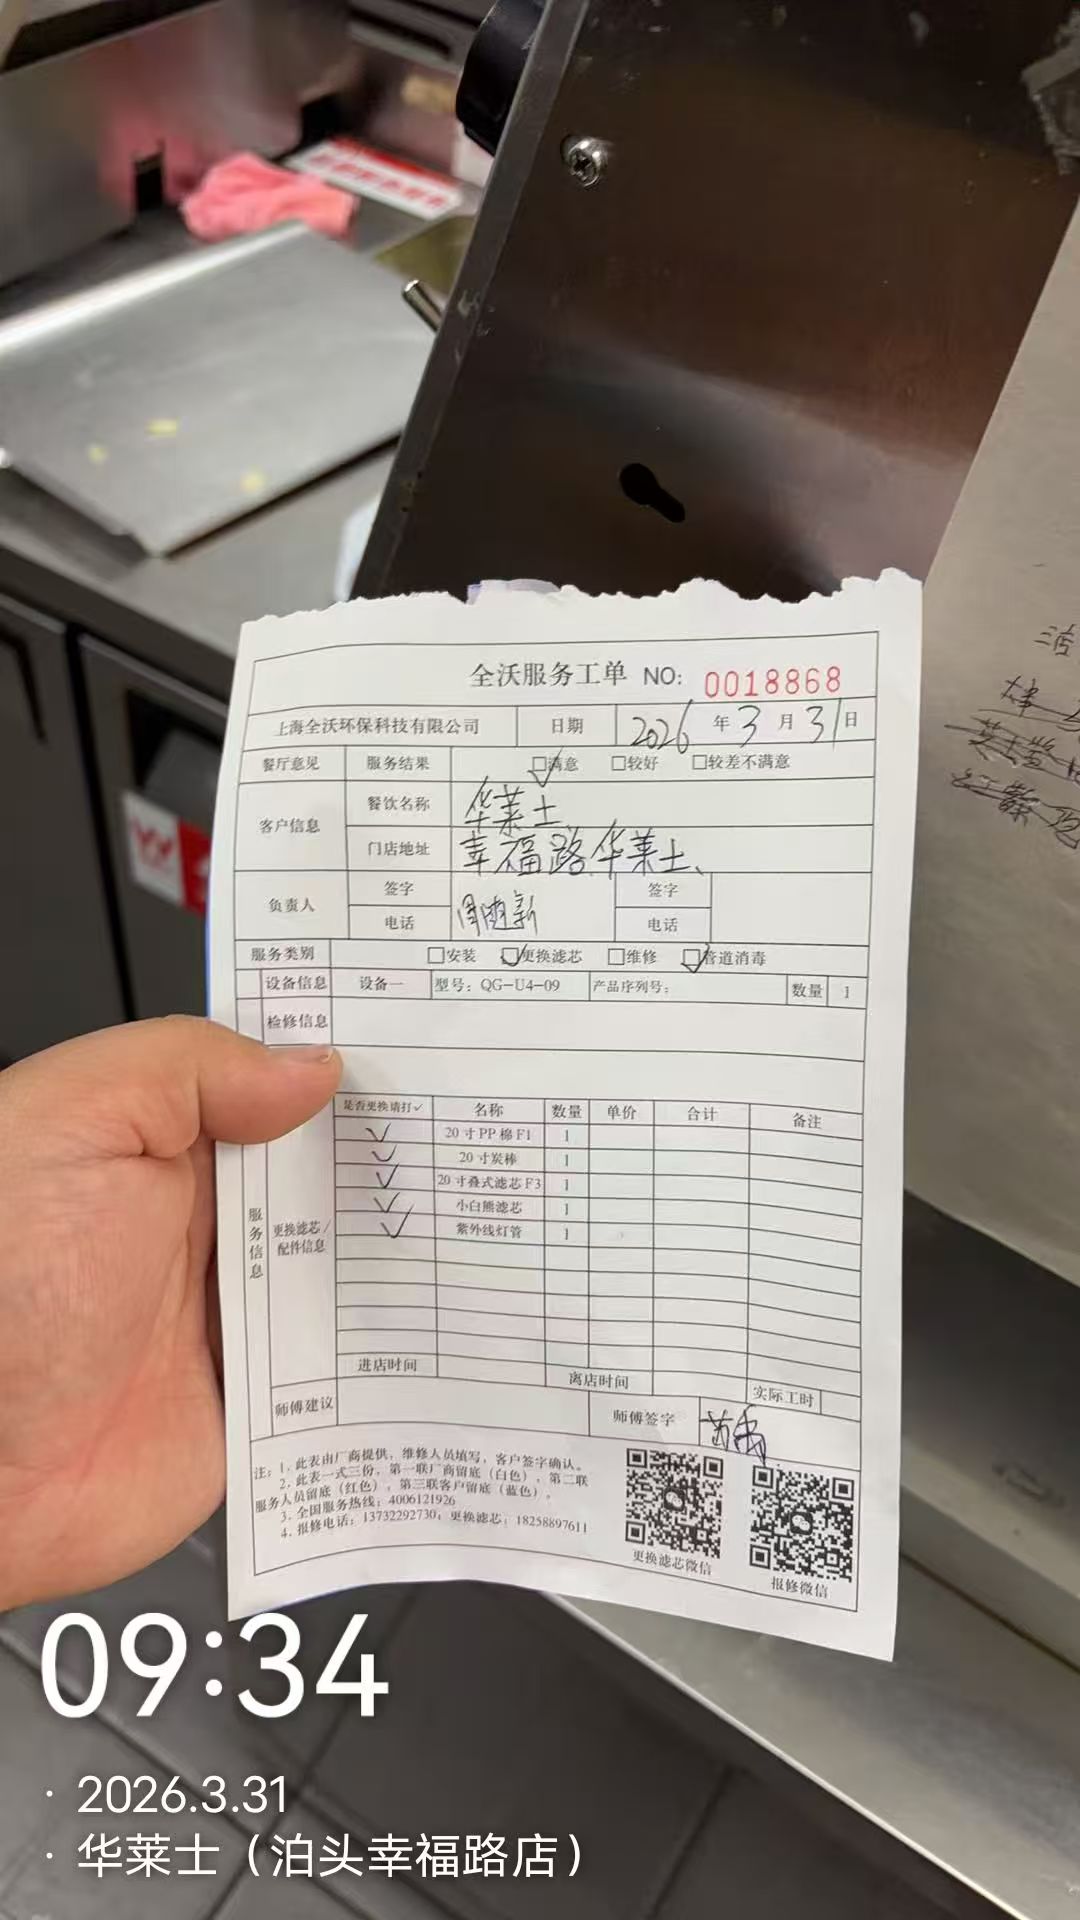 全沃服务工单 NO: 0018868
上海全沃环保科技有限公司 日期 2026 年 3 月 31 日
餐厅意见 服务结果 满意 较好 较差不满意
客户信息 餐饮名称 华莱士
门店地址 幸福路华莱士、
负责人 签字 签字
电话 电话
服务类别 安装 更换滤芯 维修 管道消毒
设备信息 设备一 型号: QG-U4-09 产品序列号: 数量 1
检修信息
是否更换请打✓ 名称 数量 单价 合计 备注
✓ 20寸PP棉F1 1
✓ 20寸炭棒 1
✓ 20寸叠式滤芯F3 1
✓ 小白熊滤芯 1
✓ 紫外线灯管 1
服务信息
更换滤芯/
配件信息
进店时间 离店时间 实际工时
师傅建议 师傅签字
注: 1. 此表由厂商提供, 维修人员填写, 客户签字确认。
2. 此表一式三份, 第一联厂商留底 (白色), 第二联
服务人员留底 (红色), 第三联客户留底 (蓝色)。
3. 全国服务热线: 4006121926
4. 报修电话: 13732292730; 更换滤芯: 18258897611
更换滤芯微信 报修微信
09:34
· 2026.3.31
· 华莱士（泊头幸福路店）